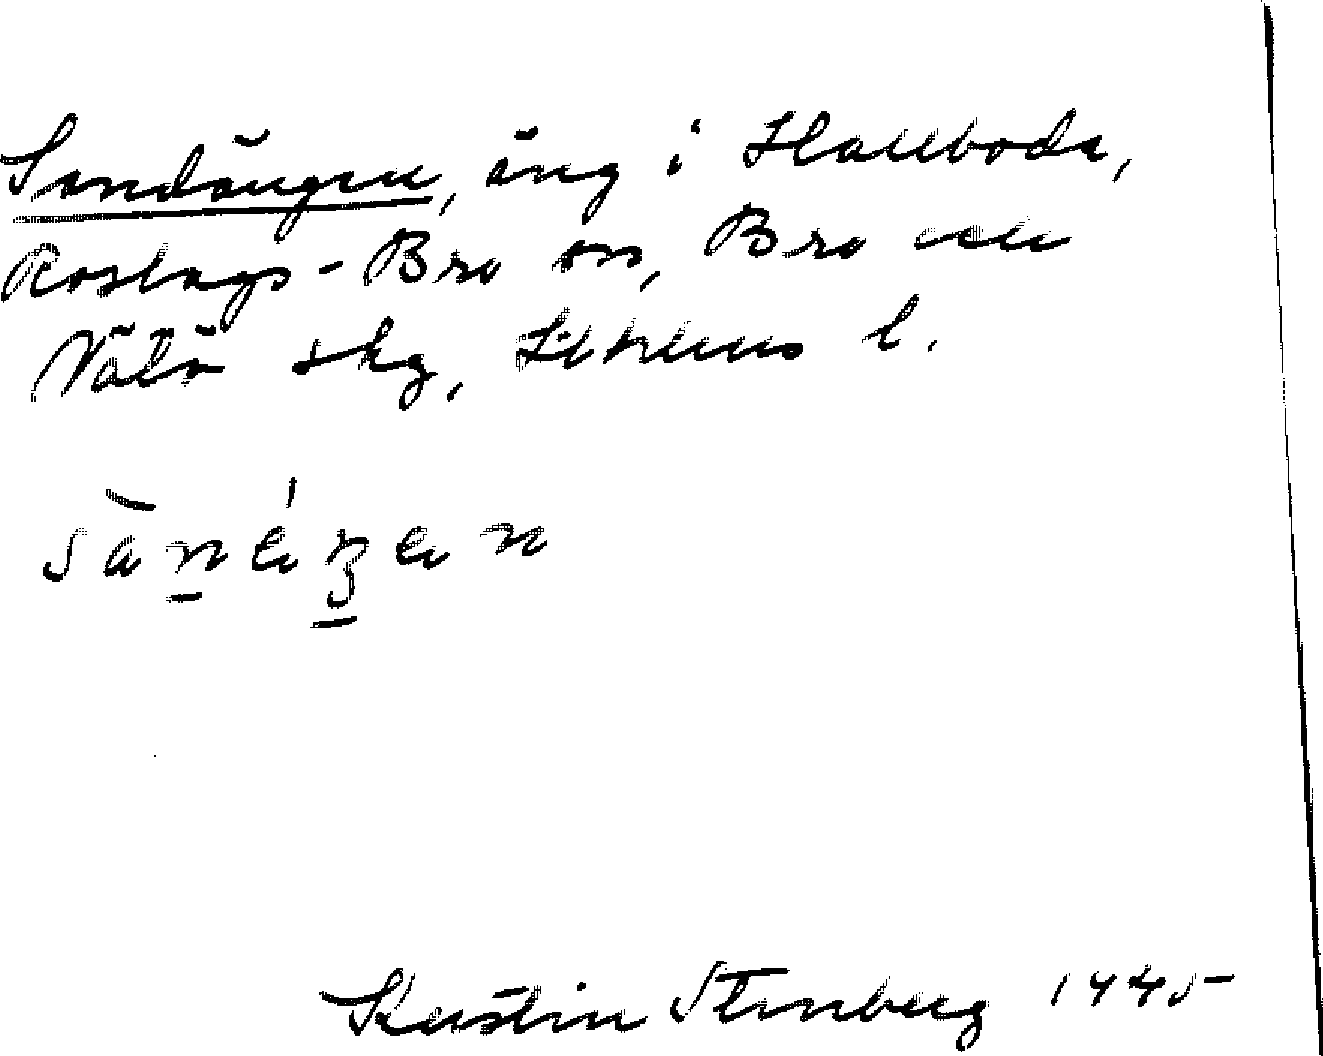 Sandängen, äng i Hallboda,
Roslags-Bro sn, Bro och
Vätö skg, Sthlms l.
sàn̠éŋ̠en
Kerstin Stenberg 1945